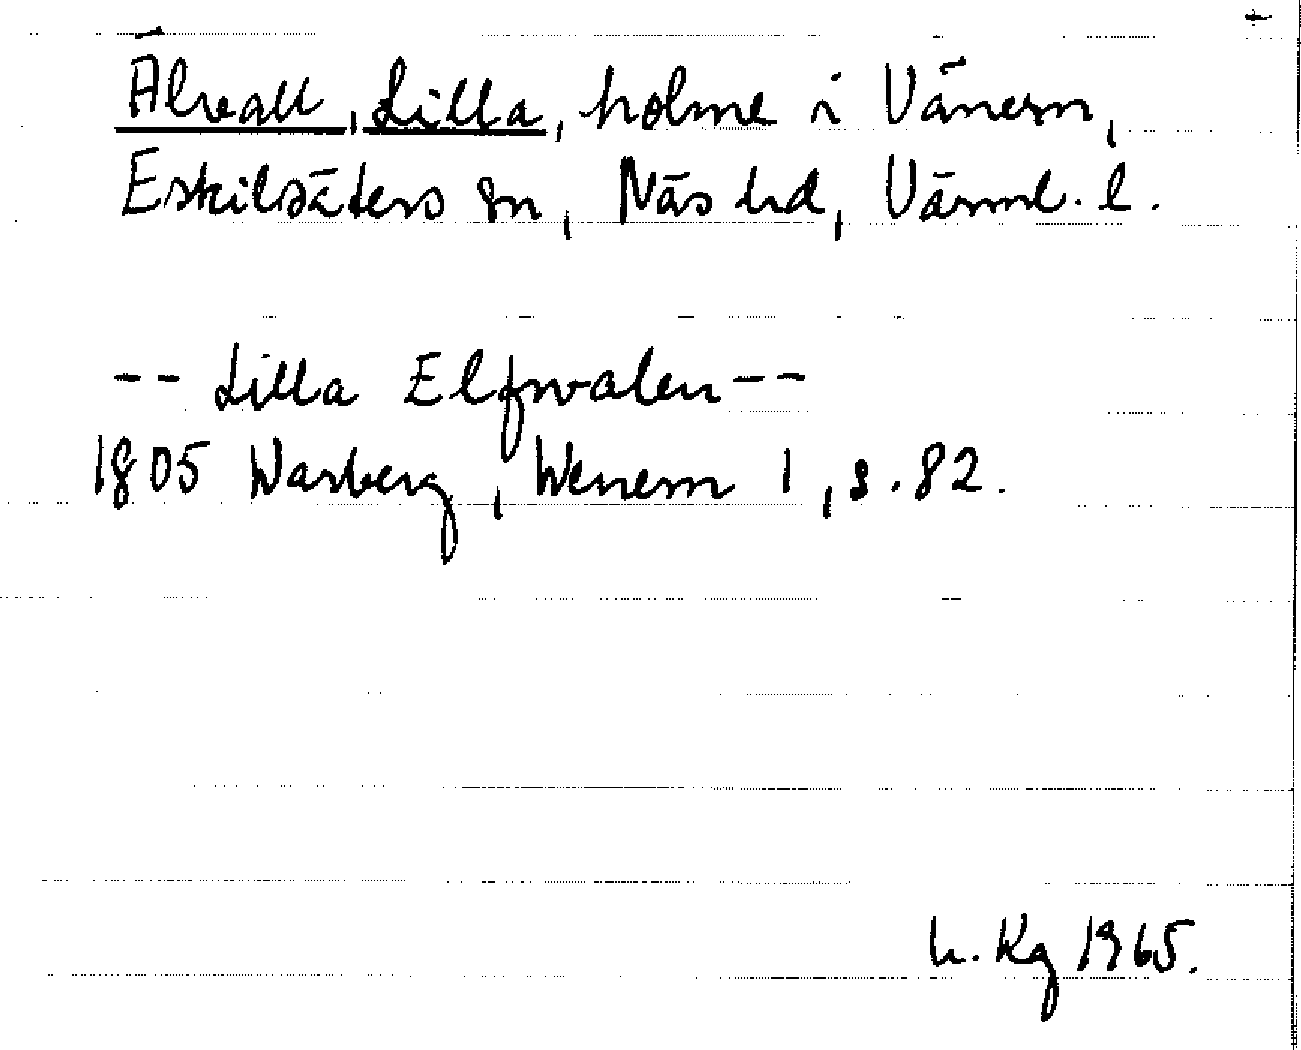 Älvall, Lilla, holme i Vänern,
Eskilsäters sn, Näs hd, Värml. l.
-- Lilla Elfwalen --
1805 Warberg, Wenern 1, s. 82.
h. Kg 1965.